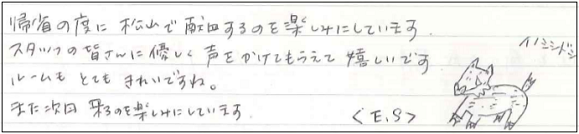 帰省の度に 松山で献血するのを楽しみにしています
スタッフの皆さんに優しく声をかけてもらえて嬉しいです
ルームも とても きれいですね。
また次回 来るのを楽しみにしています
<E.S>